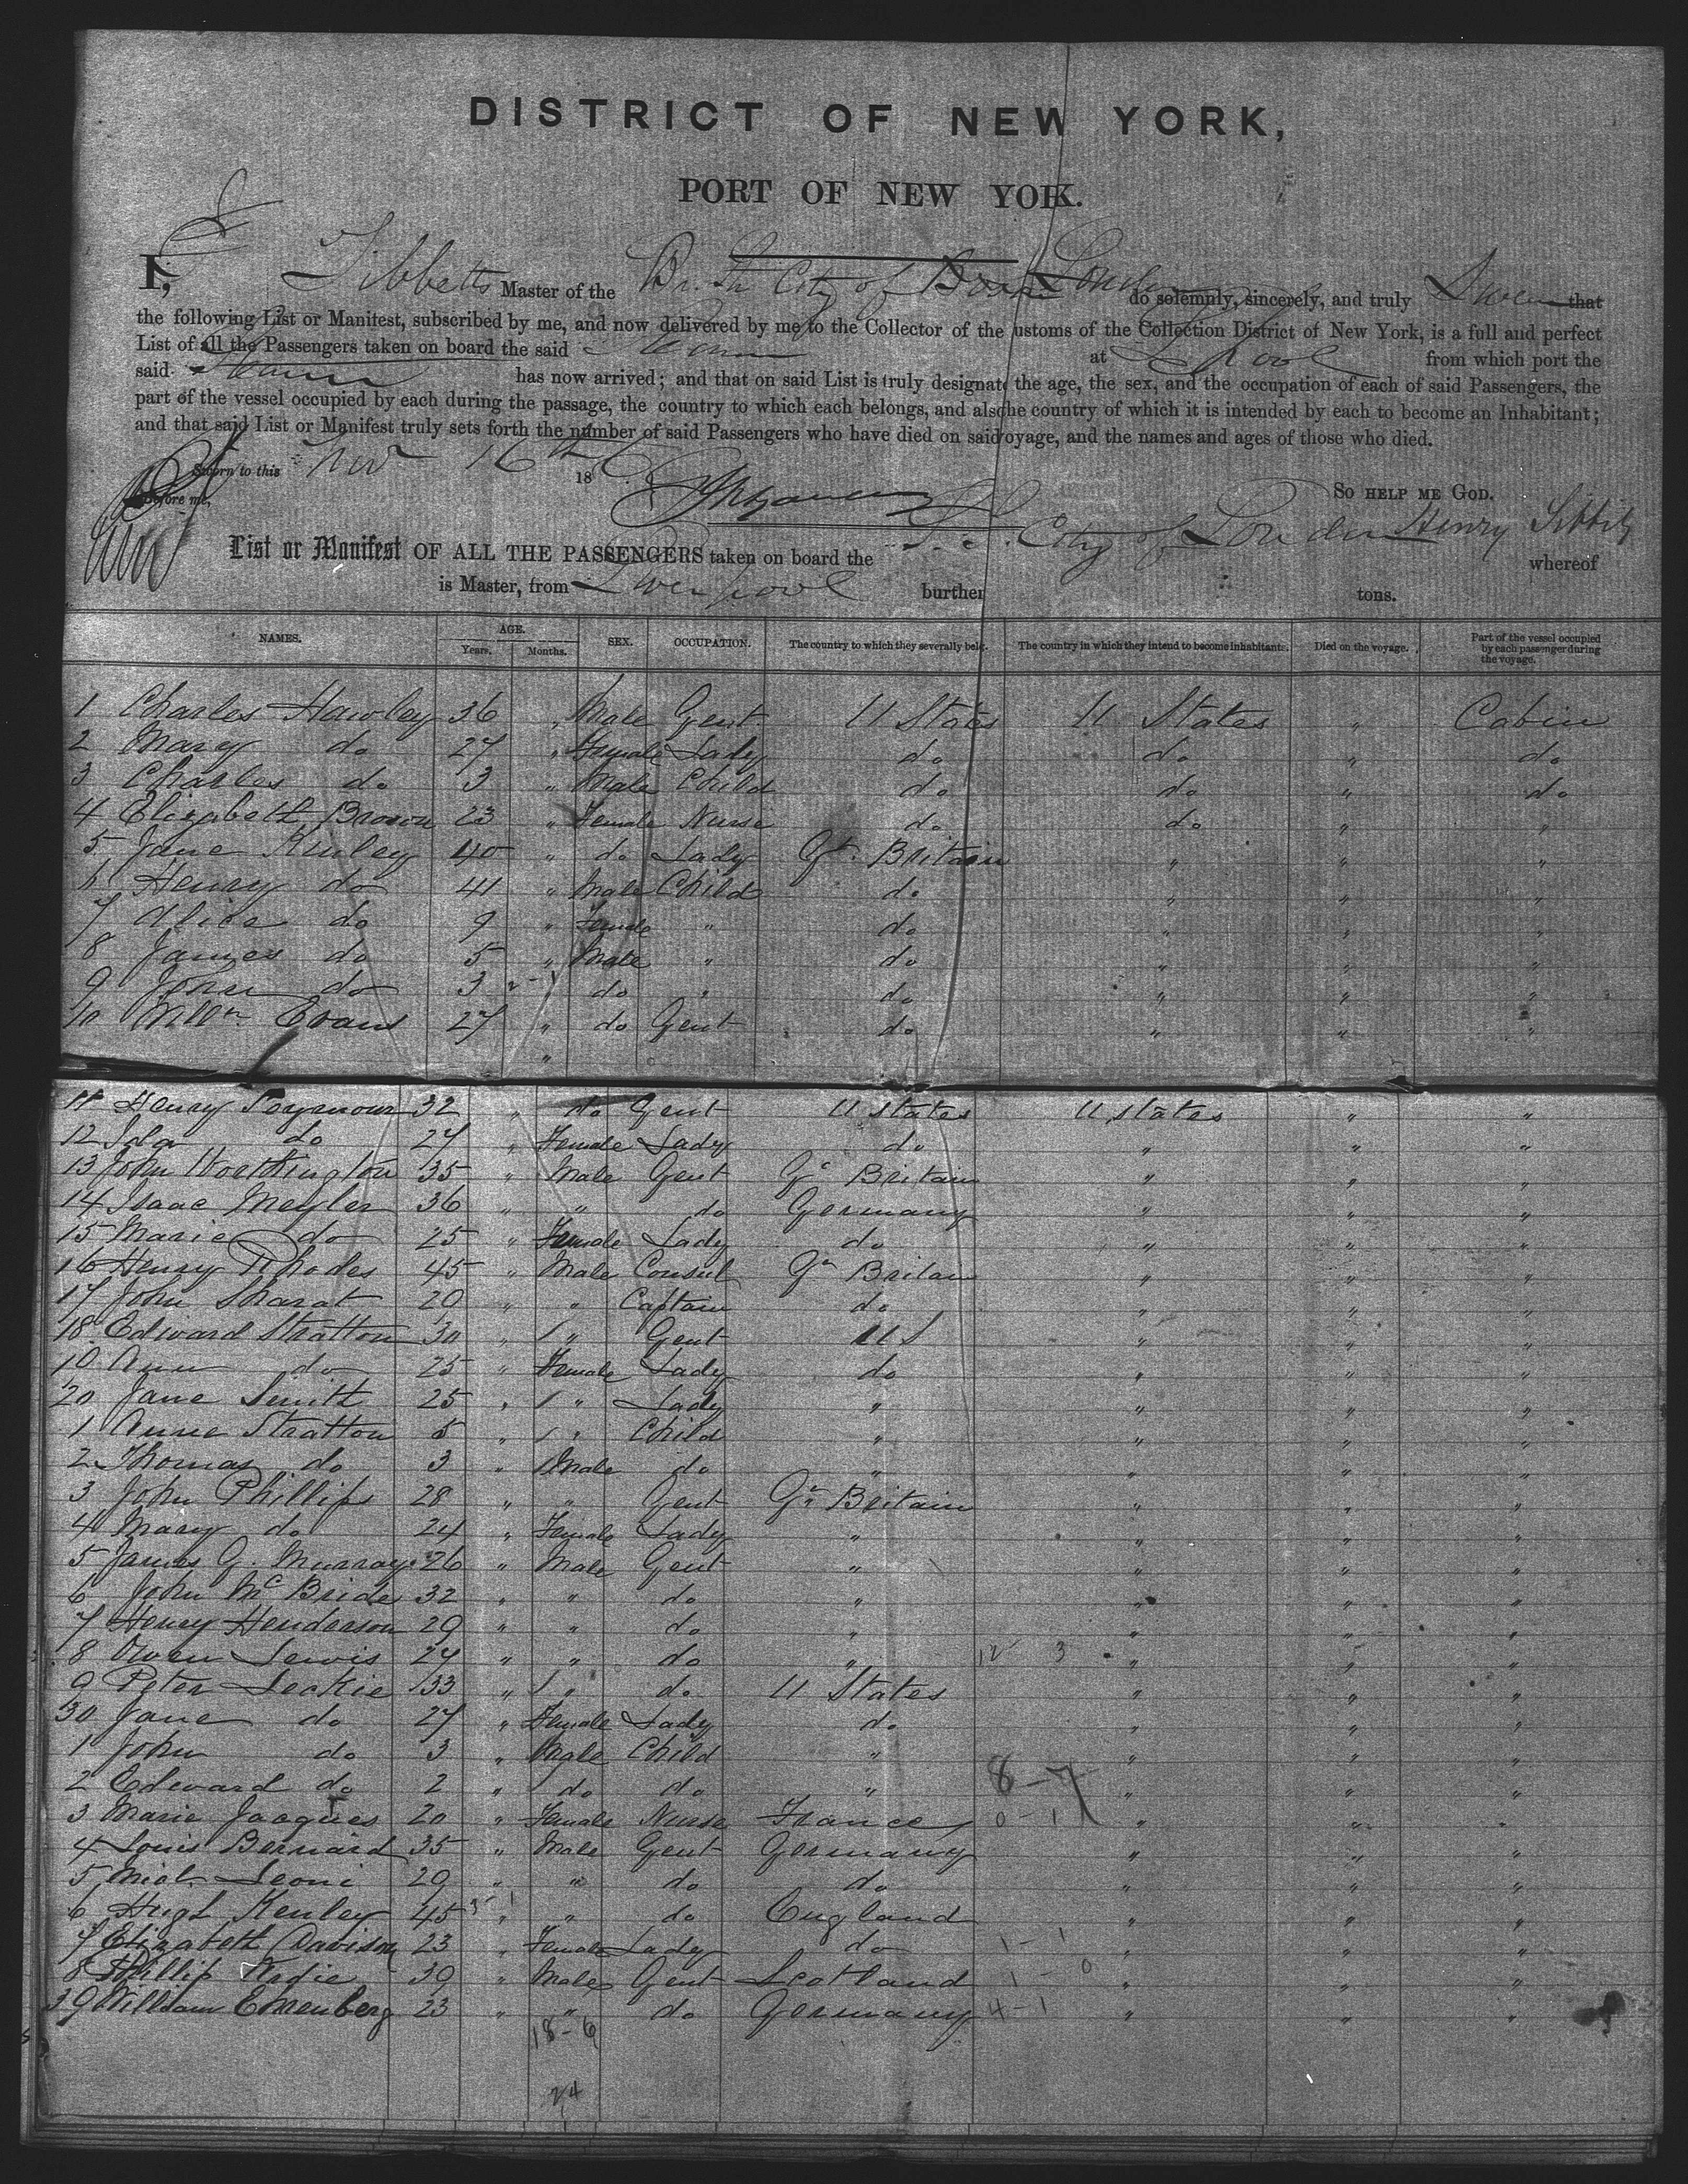 DISTRICT OF NEW YORK,
PORT OF NEW YORK.
I, Tibbetts Master of the Br. Str City of London do solemnly, sincerely, and truly Swear that
the following List or Manifest, subscribed by me, and now delivered by me to the Collector of the ustoms of the Collection District of New York, is a full and perfect
List of all the Passengers taken on board the said Steamer at L'pool from which port the
said Steamer has now arrived; and that on said List is truly designate the age, the sex, and the occupation of each of said Passengers, the
part of the vessel occupied by each during the passage, the country to which each belongs, and also he country of which it is intended by each to become an Inhabitant;
and that said List or Manifest truly sets forth the number of said Passengers who have died on said oyage, and the names and ages of those who died.
Sworn to this Nov 16th 18
Before me, SO HELP ME GOD.
List or Manifest OF ALL THE PASSENGERS taken on board the S.S. City of London Henry Tibbits whereof
is Master, from Liverpool burthen tons.
NAMES. AGE. Years. Months. SEX. OCCUPATION. The country to which they severally belg. The country in which they intend to become inhabitants. Died on the voyage. Part of the vessel occupied by each passenger during the voyage.
1 Charles Hawley 36 " Male Gent U States U States " Cabin
2 Mary do 27 " Female Lady do do " do
3 Charles do 3 " Male Child do do " do
4 Elizabeth Brown 23 " Female Nurse do do " "
5 Jane Kenley 40 " do Lady Gt. Britain " " "
6 Henry do 11 " Male Child do " " "
7 Alice do 9 " Female " do " " "
8 James do 5 " Male " do " " "
9 John do 3 do " do " " "
10 Willm. Evans 27 " do Gent do " " "
11 Henry Seymour 32 " do Gent U States U States " "
12 Ida do 27 " Female Lady do " " "
13 John Worthington 35 " Male Gent Gt Britain " " "
14 Isaac Meyler 36 " " do Germany " " "
15 Marie do 25 " Female Lady do " " "
16 Henry Rhodes 45 " Male Consul Gt Britain " " "
17 John Sharat 20 " " Captain do " " "
18 Edward Stratton 30 " " Gent U S " " "
19 Ann do 25 " Female Lady do " " "
20 Jane Smith 25 " " Lady " " " "
1 Anne Stratton 5 " " Child " " " "
2 Thomas do 3 " Male do " " " "
3 John Phillips 28 " " Gent Gt Britain " " "
4 Mary do 24 " Female Lady " " " "
5 James G. Murray 26 " Male Gent " " " "
6 John McBride 32 " " do " " " "
7 Henry Henderson 29 " " do " " " "
8 Owen Lewis 27 " " do " 12 3 " " "
9 Peter Leckie 33 " " do U States " " "
30 Jane do 27 " Female Lady do " " "
1 John do 3 " Male Child " " " "
2 Edward do 2 " do do " 8-7 " " "
3 Marie Jacques 20 " Female Nurse France 0 1 " " "
4 Louis Bernard 35 " Male Gent Germany " " "
5 Leoni 29 " " do do " " "
6 Hugh Kenley 45 " " do England " " "
7 Elizabeth Davison 23 " Female Lady do 1-1 " " "
8 Phillip 30 " Male Gent Scotland 1-0 " " "
39 William Ehrenberg 23 " " do Germany 4-1 " " "
18-6
24